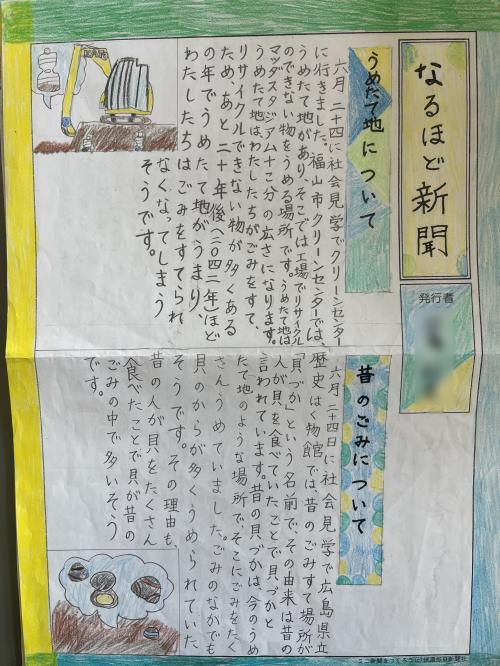 なるほど新聞
発行者
うめたて地について
六月二十四に社会見学でクリーンセンター
に行きました。福山市クリーンセンターでは、
うめたて地があり、そこでは工場でリサイクル
のできない物をうめる場所です。うめたて地は
マツダスタジアム十二分の広さになります。
うめたて地はわたしたちがごみをすて、
リサイクルできない物が多くある
ため、あと二十年後(二〇四二年)ほど
の年でうめたて地がうまり、
わたしたちはごみをすてられ
なくなってしまう
そうです。
昔のごみについて
六月二十四日に社会見学で広島県立
歴史はく物館では、昔のごみすて場所が
「貝づか」という名前で、その由来は昔の
人が貝を食べていたことで貝づかと
言われています。昔の貝づかは、今のうめ
たて地のような場所で、そこにごみをたく
さんうめていましたごみのなかでも
貝のからが多くうめられていた
そうです。その理由も、
昔の人が貝をたくさん
食べたことで貝が昔の
ごみの中で多いそう
です。